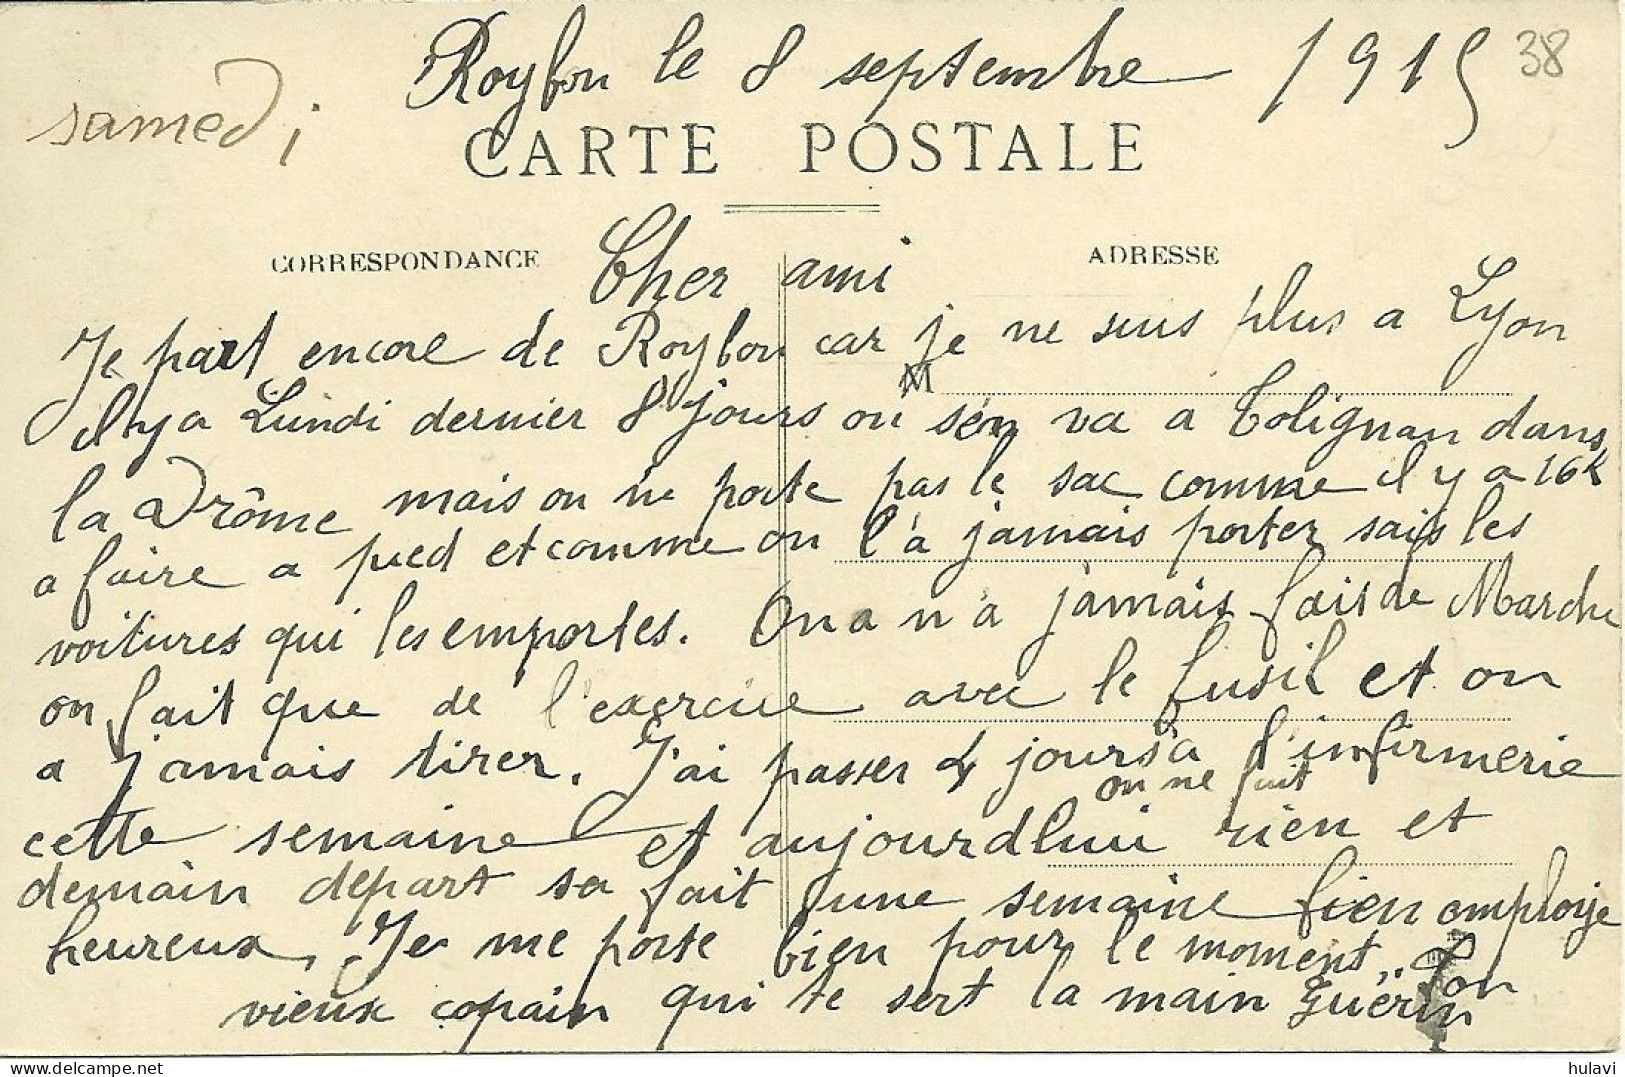 Roybon le 8 septembre 1915
38
samedi
CARTE POSTALE
CORRESPONDANCE
ADRESSE
Cher ami
Je part encore de Roybon car je ne suis plus a Lyon
M
il y a Lundi dernier 8 jours on s'en va a Tolignan dans
la Drôme mais on ne porte pas le sac comme il y a 16k
a faire a pied et comme on l'a jamais porter sais les
voitures qui les emportes. On a n'a jamais fais de Marche
on fait que de l'exercice avec le fusil et on
a jamais tirer. J'ai passer 4 jours a l'infirmerie
cette semaine et aujourd'hui on ne fait rien et
demain depart sa fait une semaine bien employe
heureux, Je me porte bien pour le moment, Ton
vieux copain qui te sert la main Guérin
hulavi